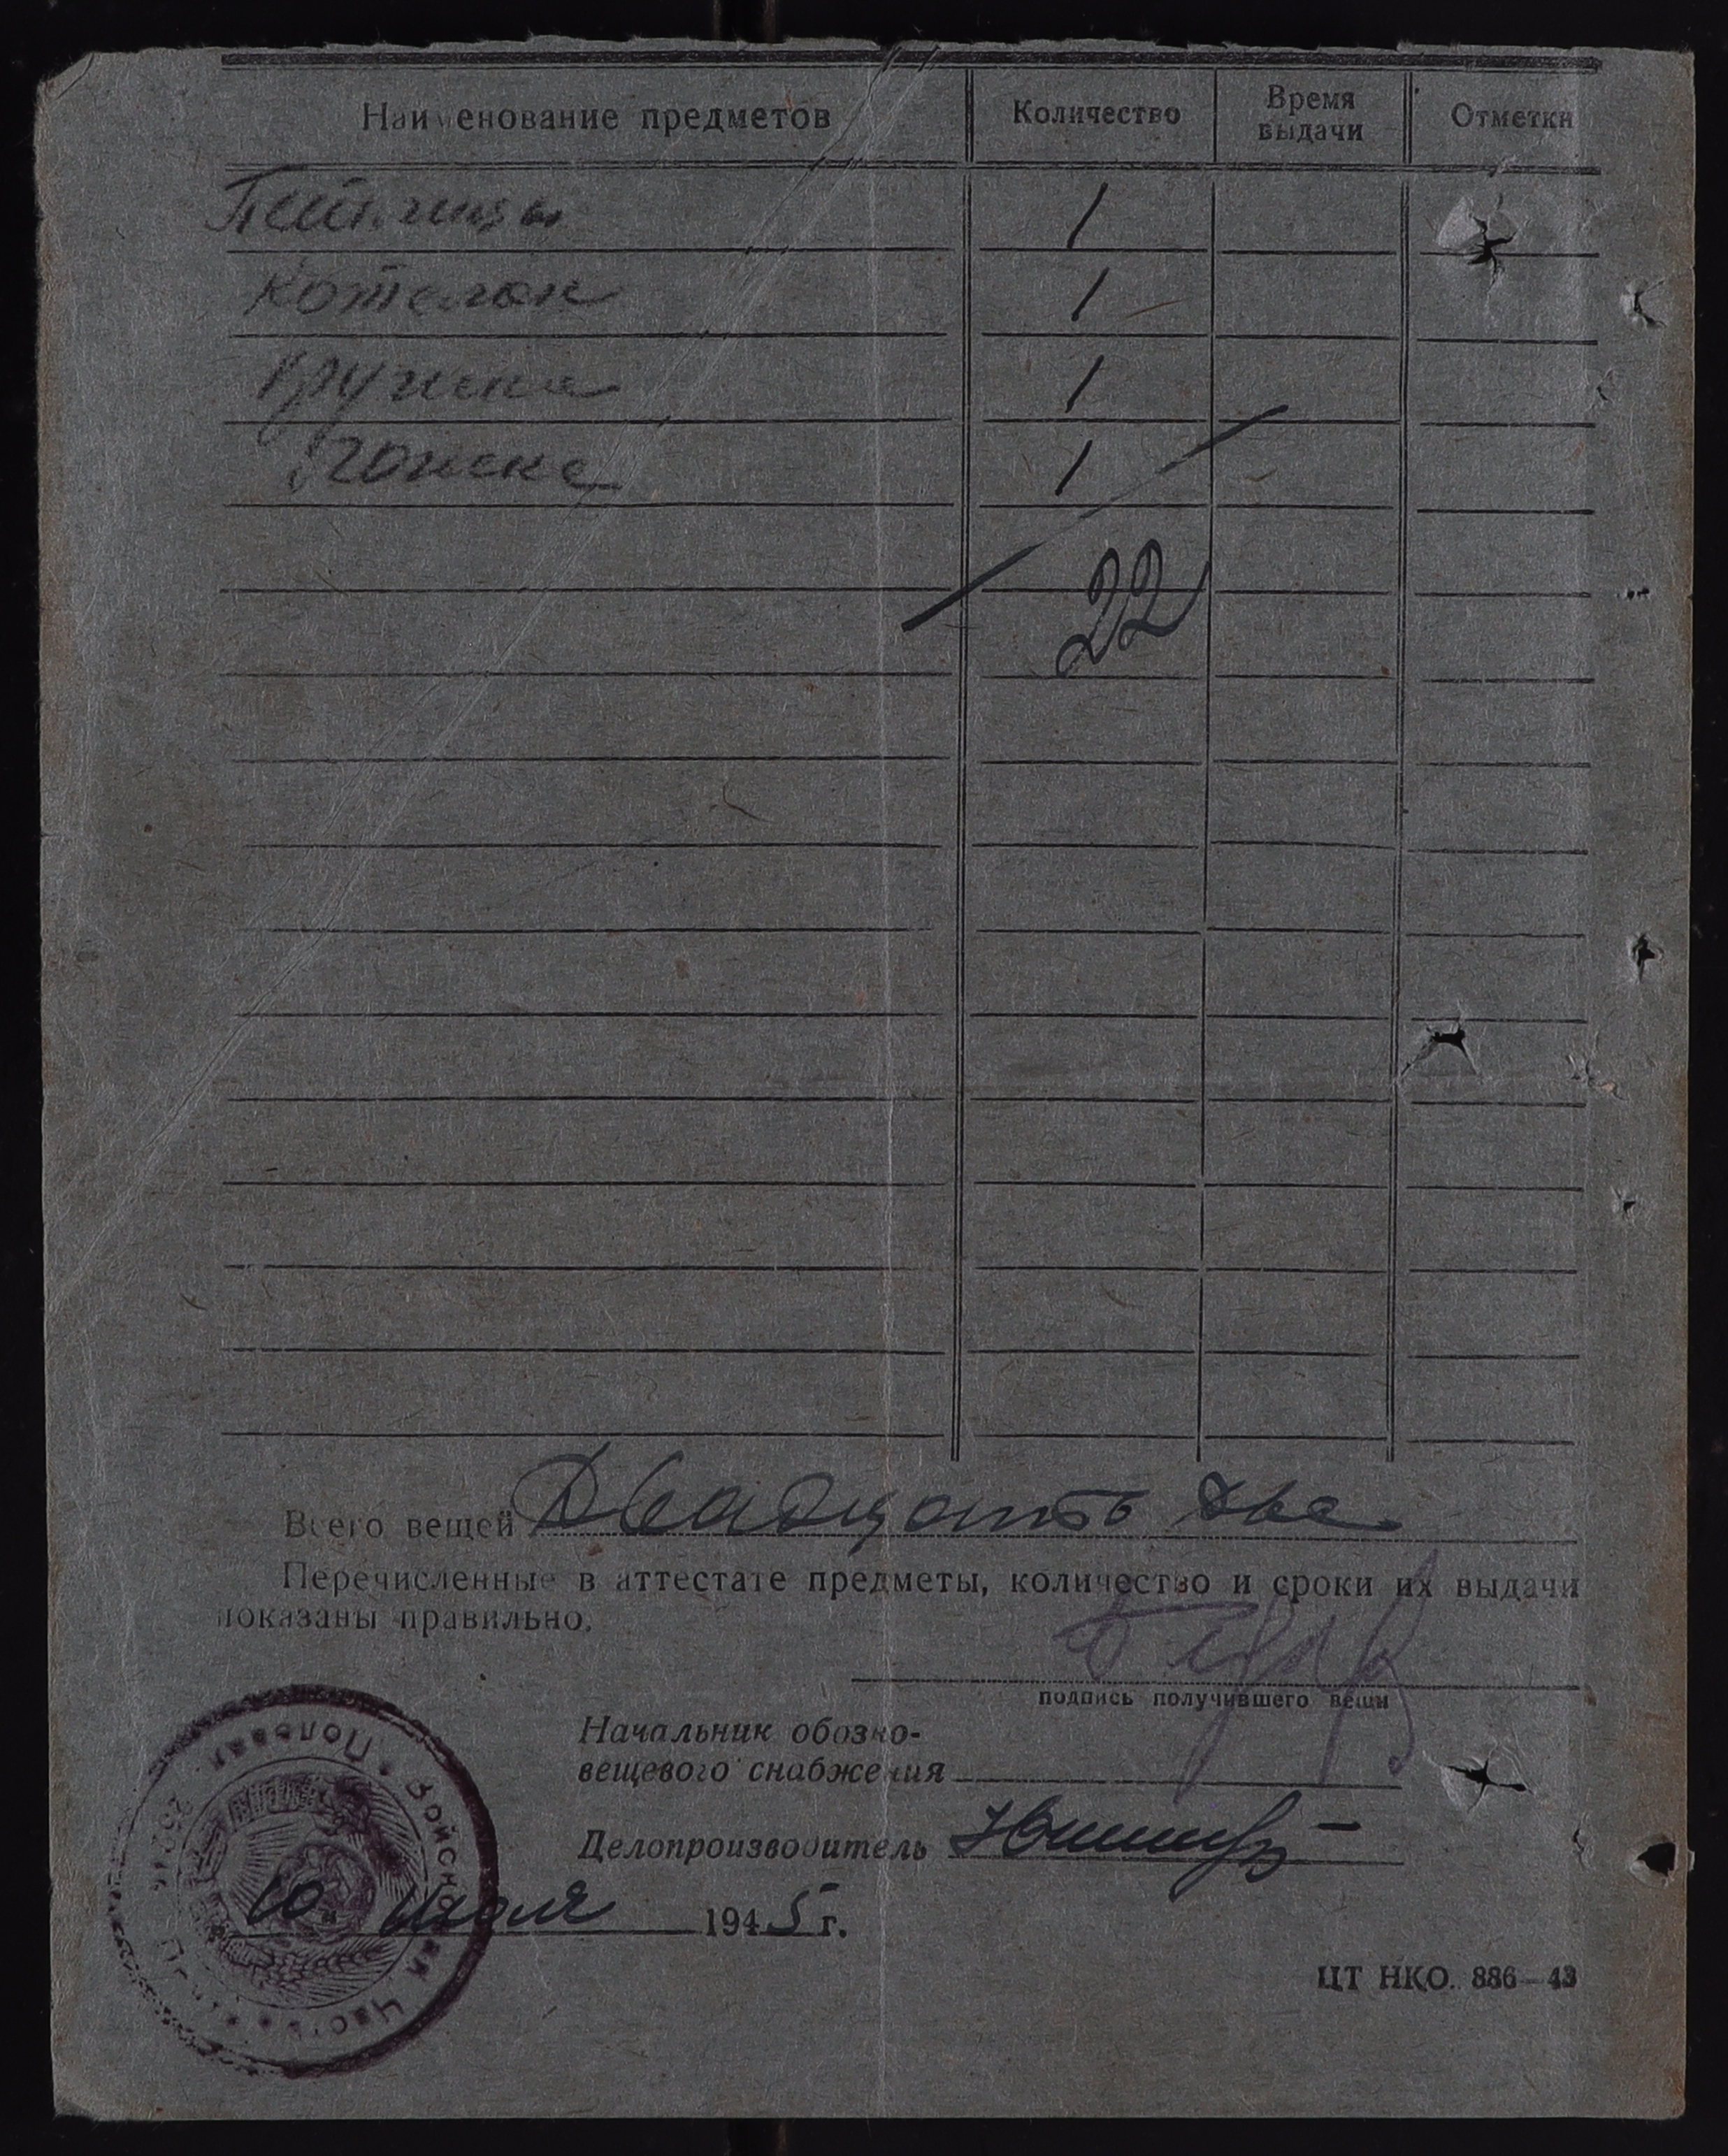 Наименование предметов Количество Время выдачи Отметки
Петлицы 1
Котелок 1
Кружка 1
Ложка 1
22
Всего вещей Двадцать две
Перечисленные в аттестате предметы, количество и сроки их выдачи
показаны правильно.
подпись получившего вещи
Начальник обозно-
вещевого снабжения
Делопроизводитель
10 июля 1945 г.
ЦТ НКО. 886—43
Войсковая Часть Полевая Почта